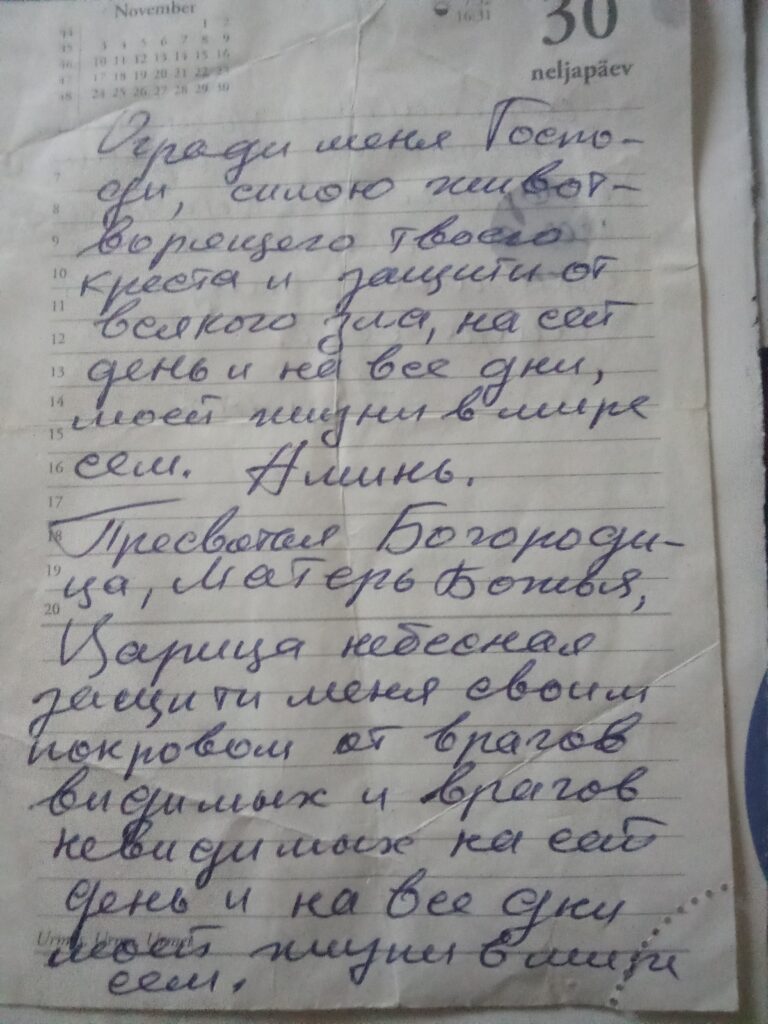 November
1 2
44
45 3 4 5 6 7 8 9
46 10 11 12 13 14 15 16
47 17 18 19 20 21 22 23
48 24 25 26 27 28 29 30
16:31
30
neljapäev
Огради меня Госпо-
ди, силою живот-
ворящего твоего
креста и защити от
всякого зла, на сей
день и на все дни,
моей жизни в мире
сем. Аминь.
Пресвятая Богороди-
ца, Матерь Божья,
Царица небесная
защити меня своим
покровом от врагов
видимых и врагов
невидимых на сей
день и на все дни
моей жизни в мире
сем.
7
8
9
10
11
12
13
14
15
16
17
18
19
20